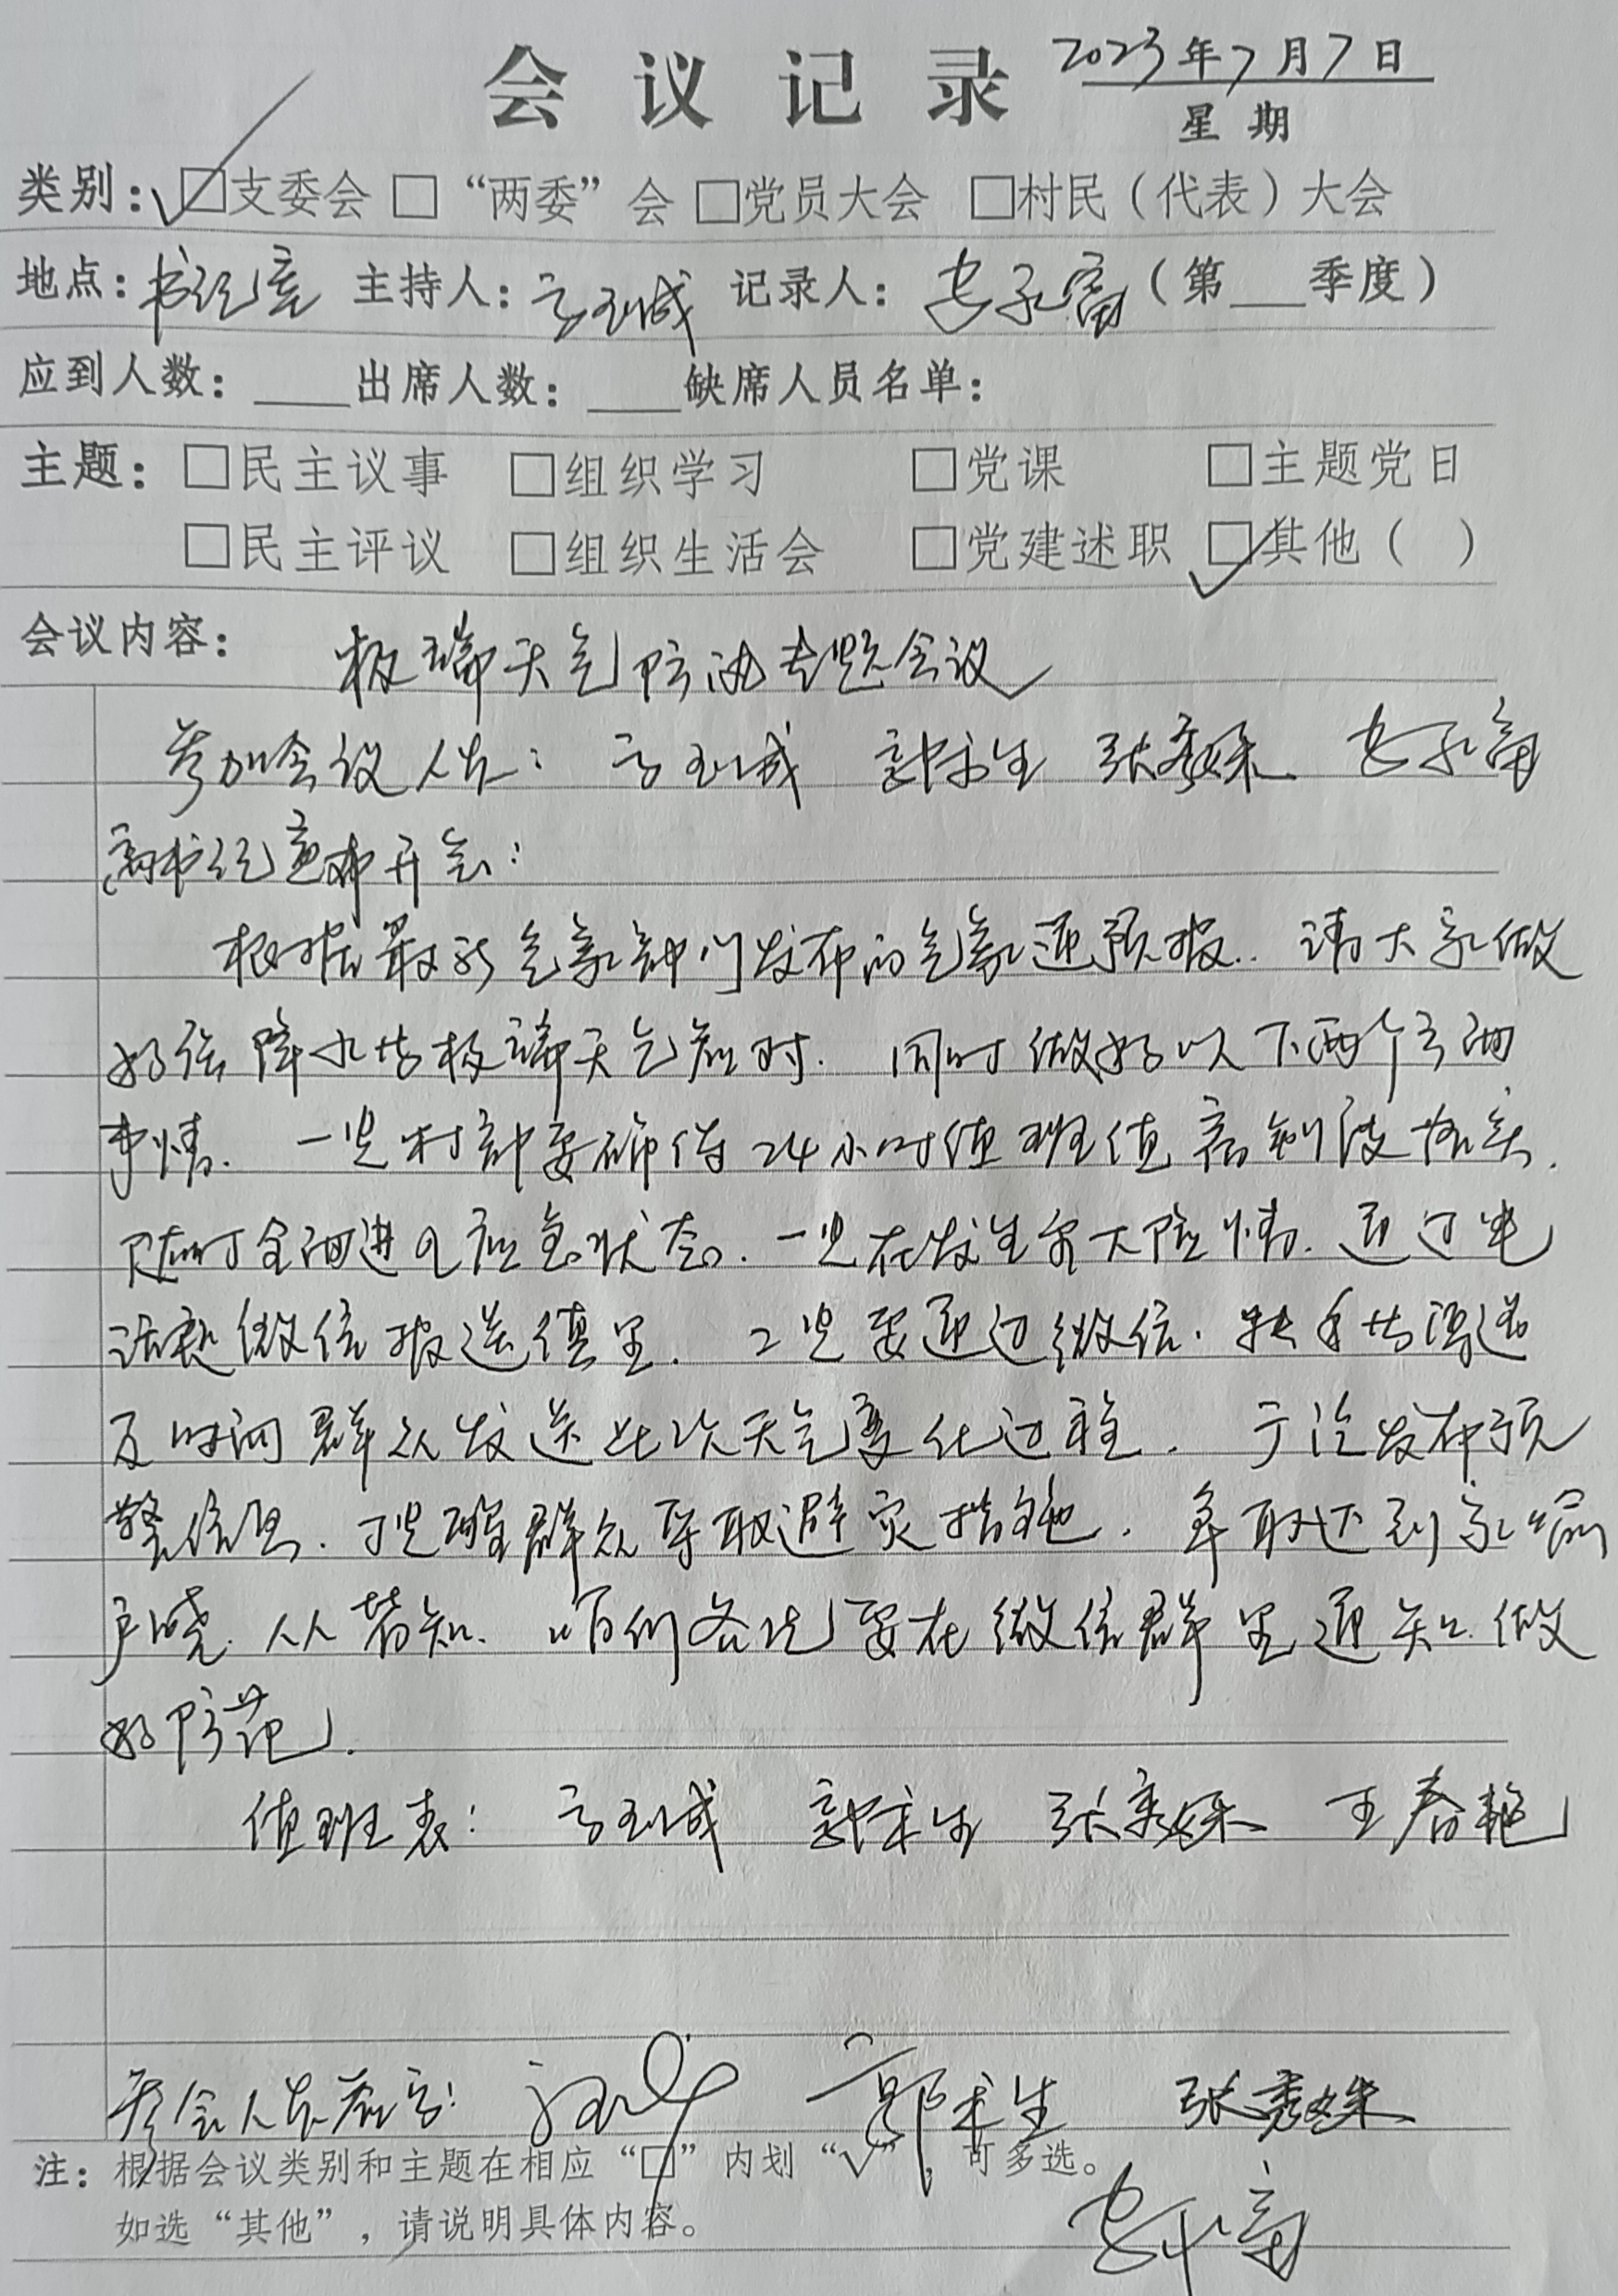 会议记录 2023年7月7日
星期
类别：☑支委会 □“两委”会 □党员大会 □村民（代表）大会
地点：书记室 主持人：高玉成 记录人：（第___季度）
应到人数：____出席人数：____缺席人员名单：
主题：□民主议事 □组织学习 □党课 □主题党日
□民主评议 □组织生活会 □党建述职 ☑其他（ ）
会议内容：极端天气防汛专题会议
参加会议人员：高玉成 郭求生 张秀妹
高书记宣布开会：
根据最新气象部门发布的气象通预报.. 请大家做
好强降水与极端天气应对. 同时做好以下两个方面
事情. 一是村部要确保24小时值班值宿制度落实.
随时全面进入应急状态. 一是在发生重大险情. 通过电
话和微信报送镇里. 二是要通过微信. 快手等渠道
及时向群众发送此次天气变化过程. 广泛发布预
警信息. 提醒群众采取避灾措施. 争取达到家喻
户晓. 人人皆知. 咱们各位要在微信群里通知. 做
好防范.
值班表： 高玉成 郭求生 张秀妹 王春艳
参会人员签字： 郭求生 张秀妹
注：根据会议类别和主题在相应“□”内划“√”，可多选。
如选“其他”，请说明具体内容。